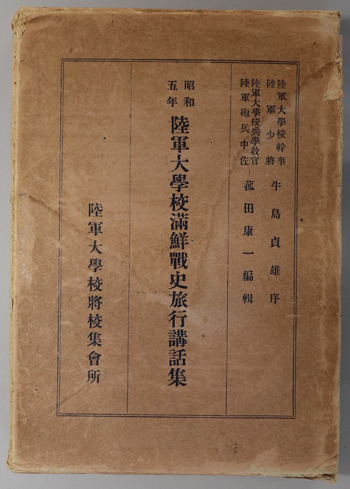 陸軍大學校幹事
陸軍少將
牛島貞雄序
陸軍大學校兵學教官
陸軍砲兵中佐
菰田康一編輯
昭和五年
陸軍大學校滿鮮戰史旅行講話集
陸軍大學校將校集會所